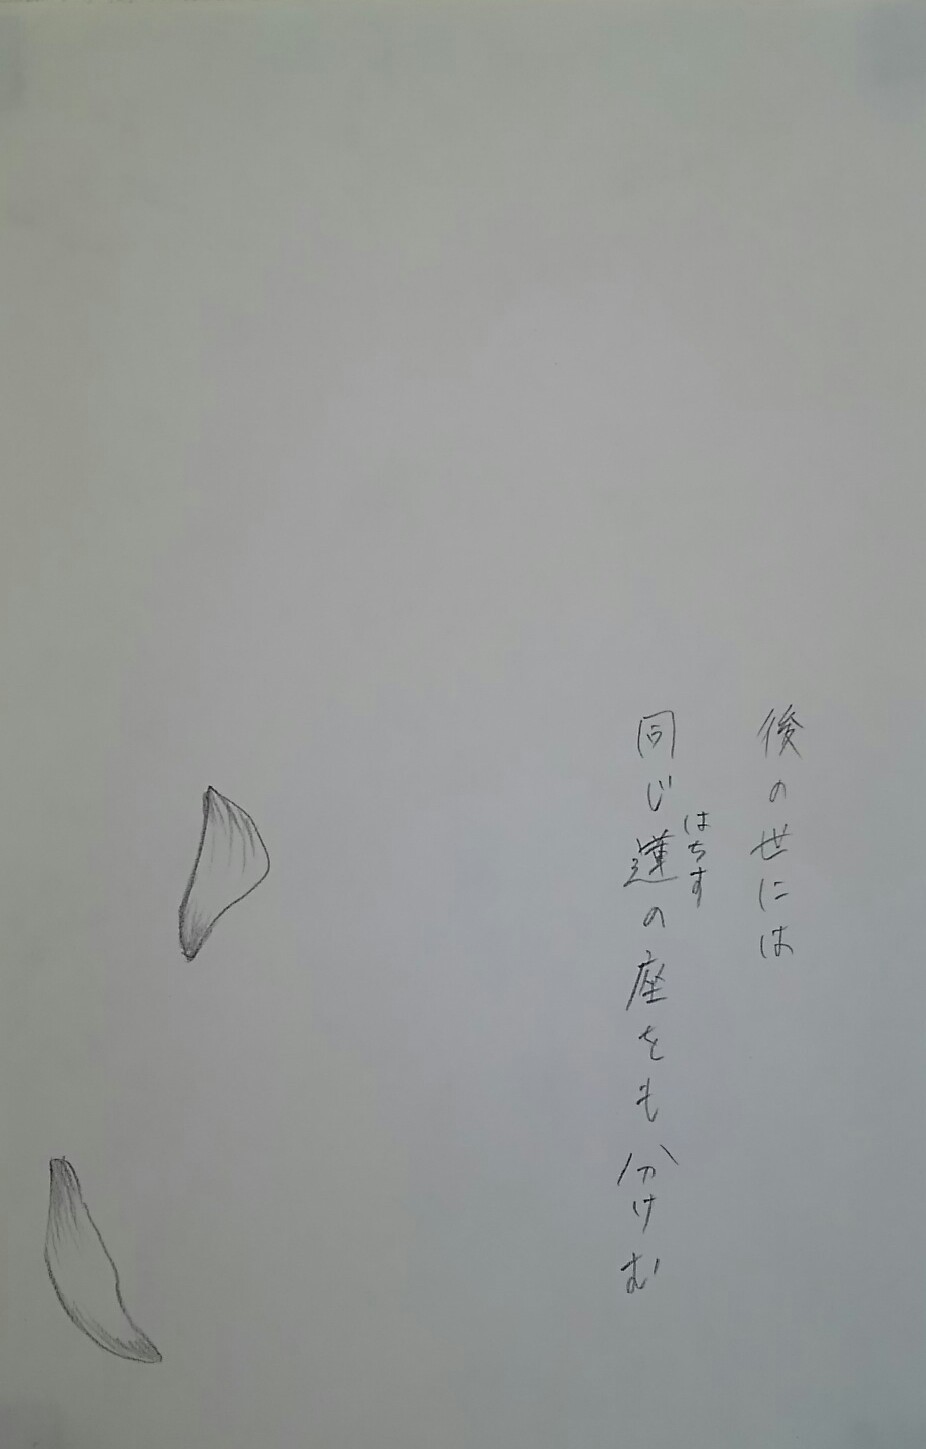 後の世には
同じ蓮の座をも分けむ
はちす